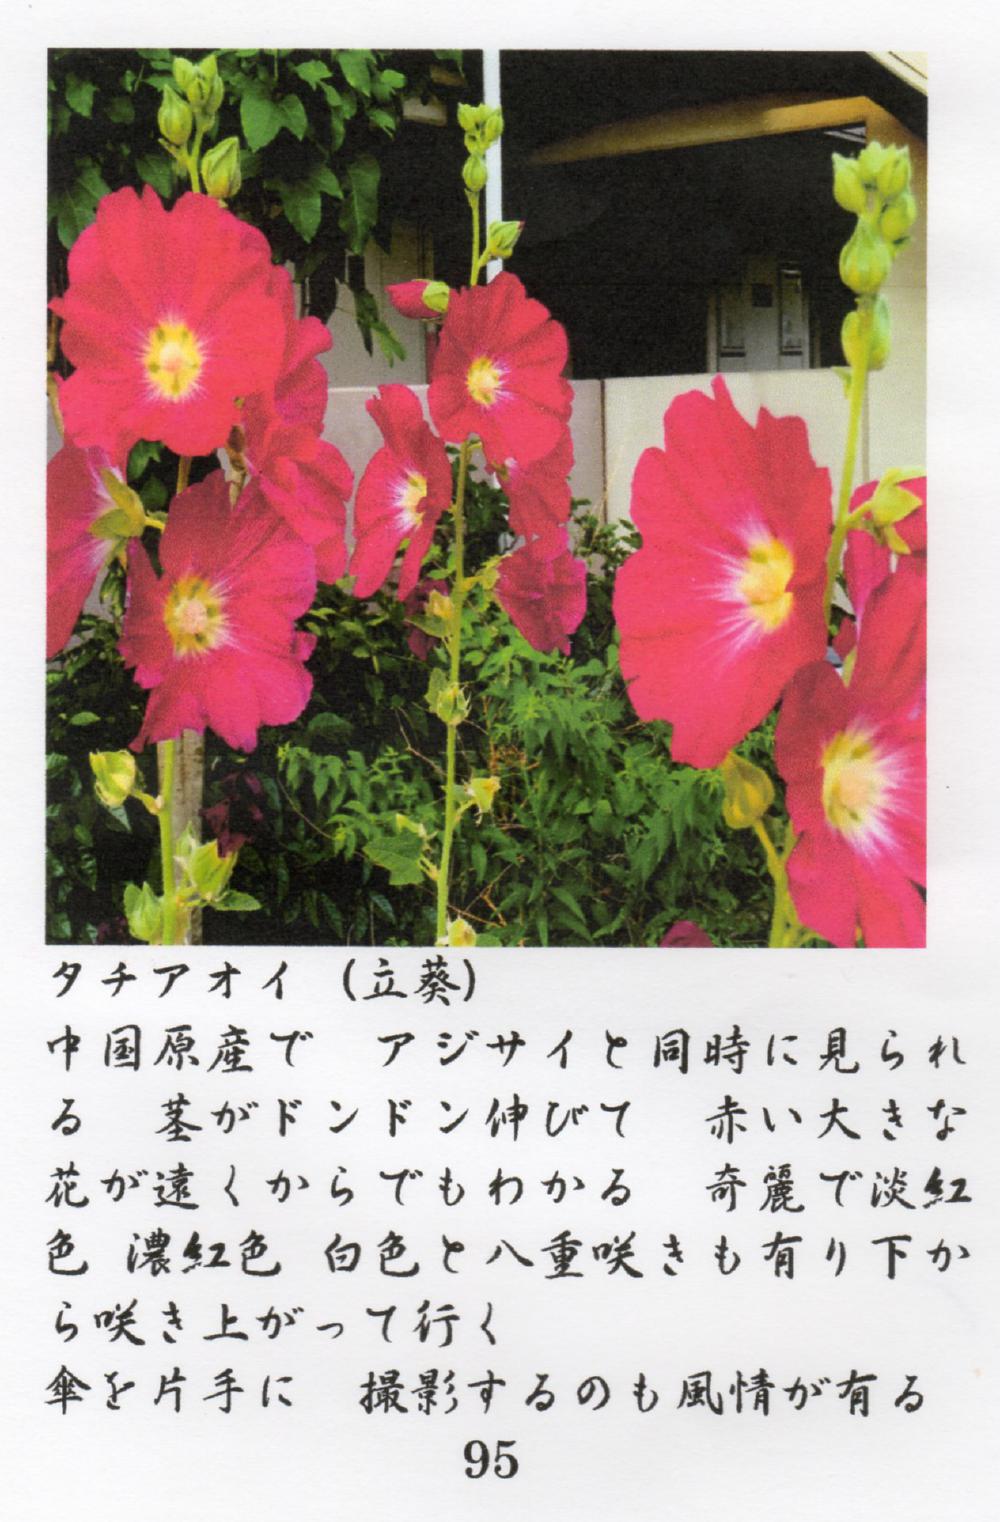 タチアオイ (立葵)
中国原産で　アジサイと同時に見られ
る　茎がドンドン伸びて　赤い大きな
花が遠くからでもわかる　奇麗で淡紅
色 濃紅色 白色と八重咲きも有り下か
ら咲き上がって行く
傘を片手に　撮影するのも風情が有る
95